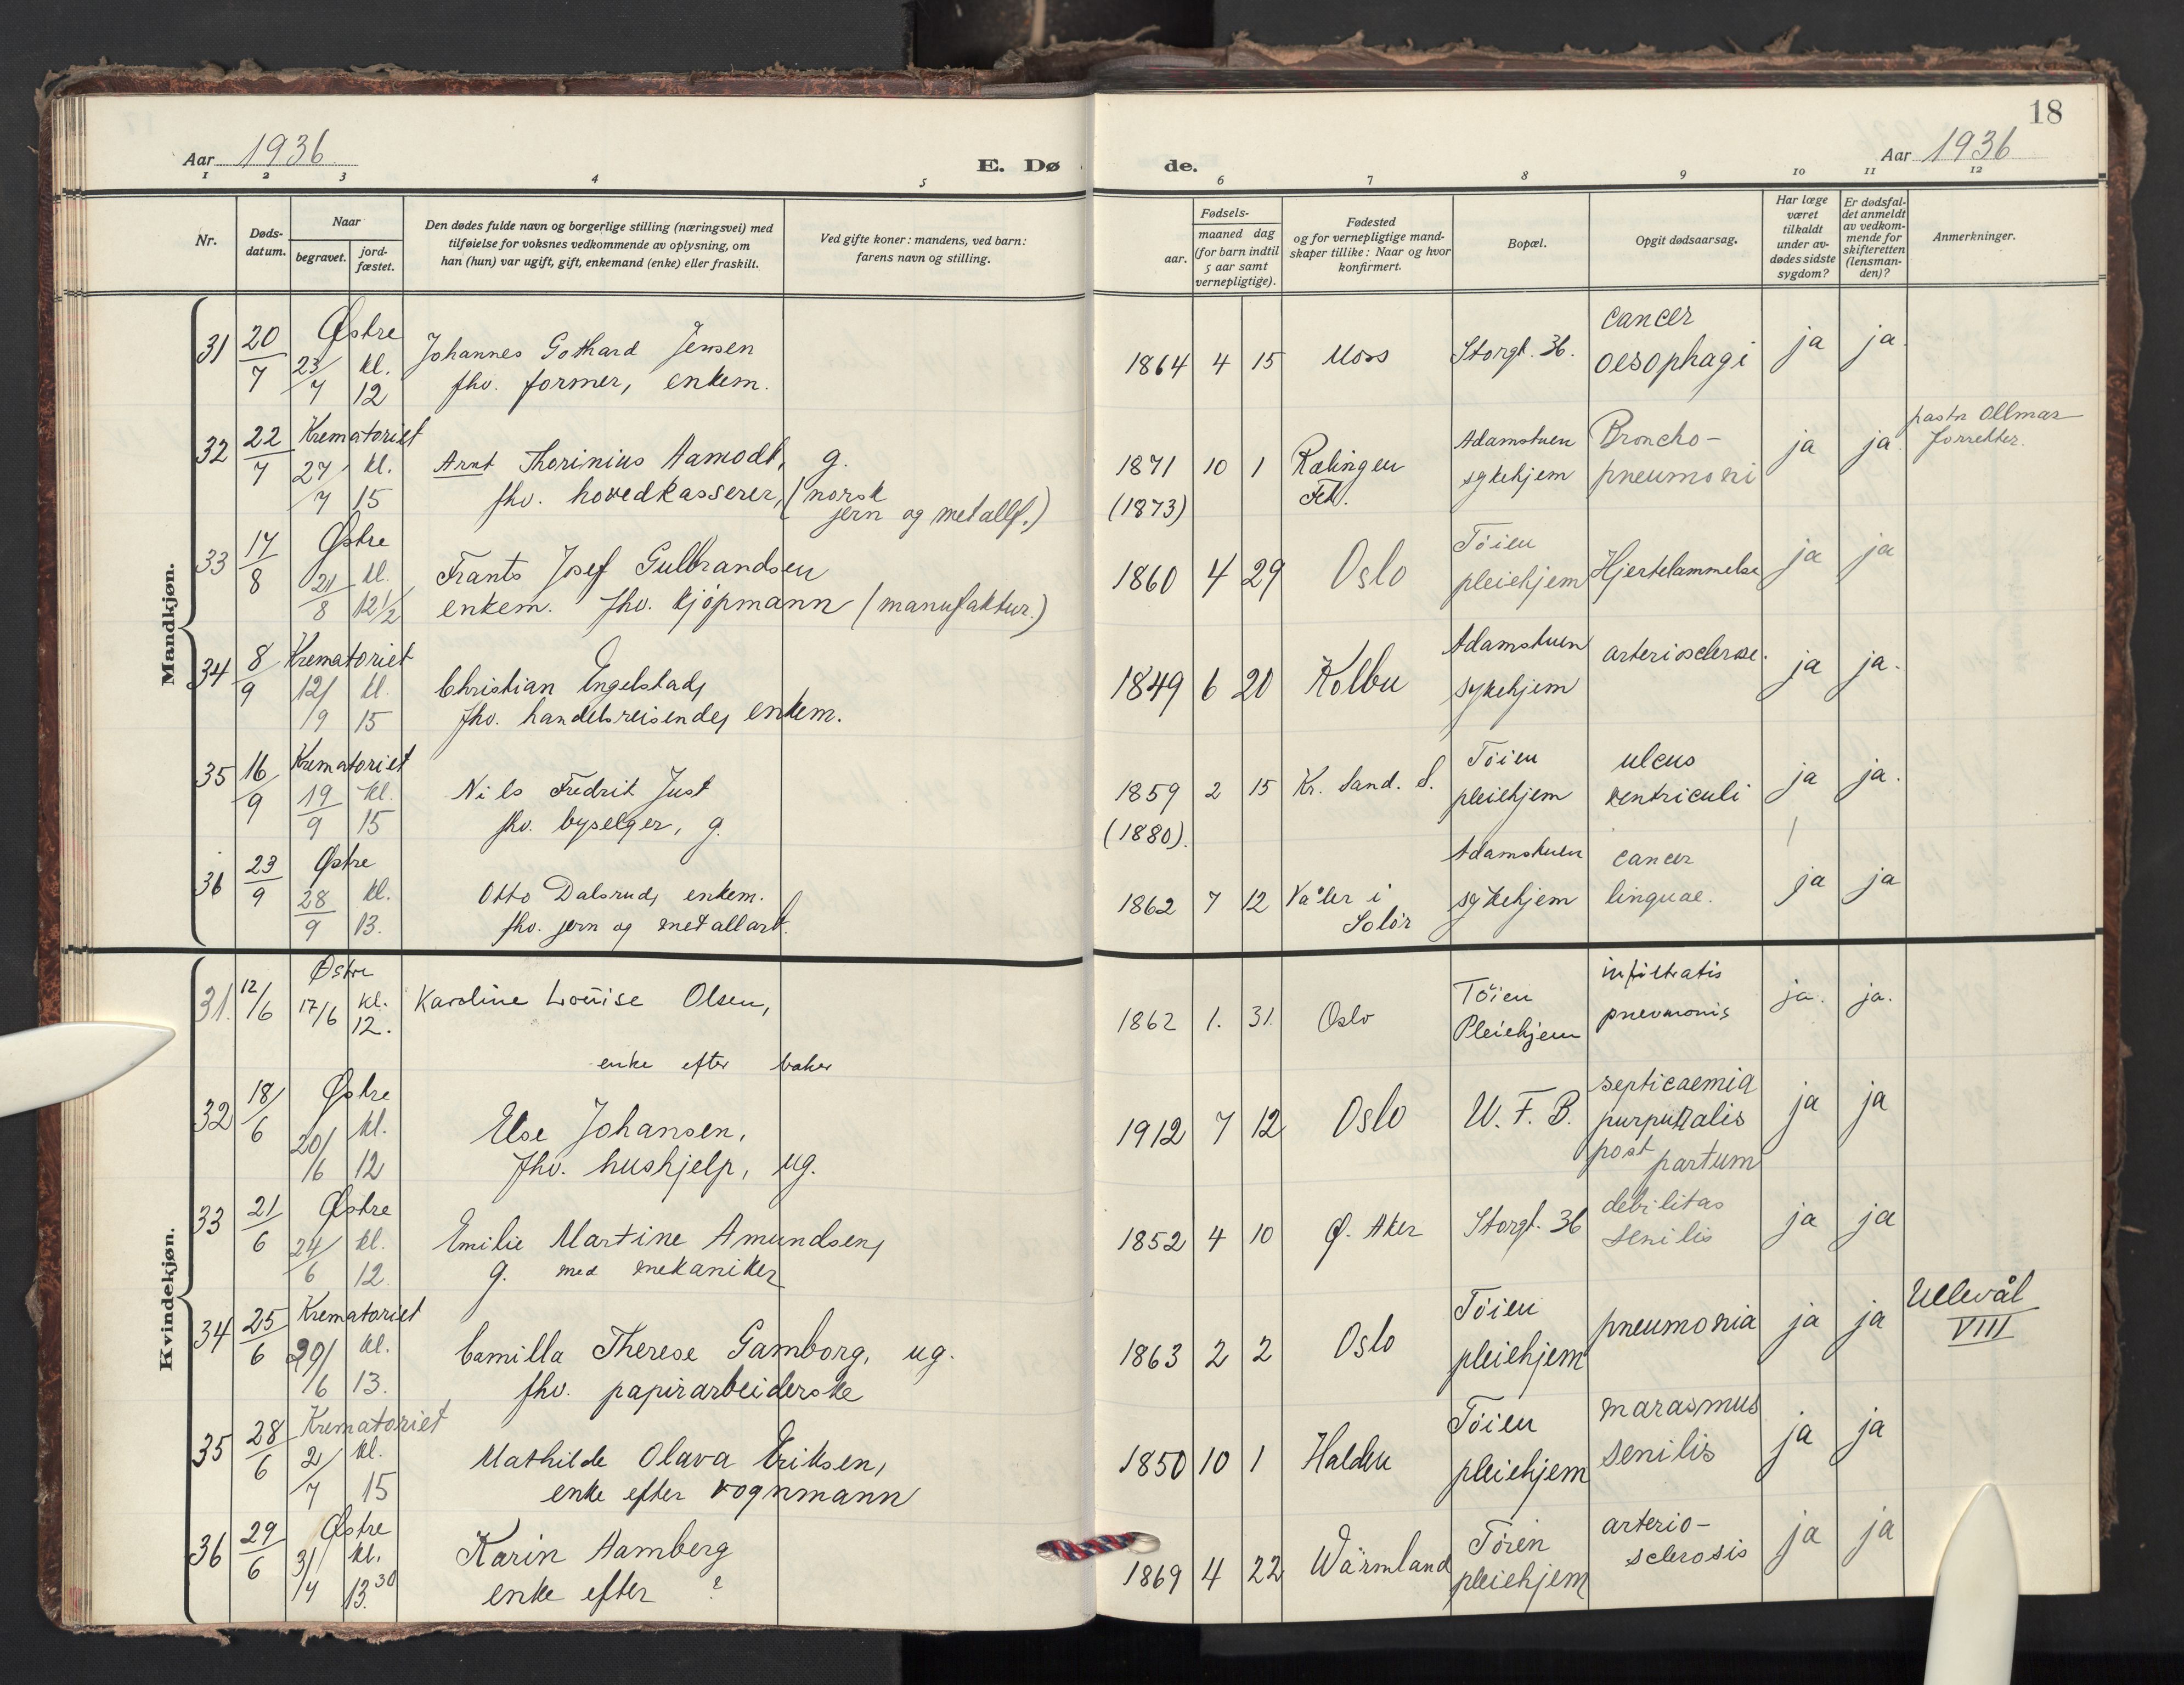 18
Aar 1936
E. Dø de.
Aar 1936
1 2 3 4 5 6 7 8 9 10 11 12
Nr.
Døds-
datum.
Naar
begravet.
jord-
fæstet.
Den dødes fulde navn og borgerlige stilling (næringsvei) med
tilføielse for voksnes vedkommende av oplysning, om
han (hun) var ugift, gift, enkemand (enke) eller fraskilt.
Ved gifte koner: mandens, ved barn:
farens navn og stilling.
Fødsels-
aar.
maaned dag
(for barn indtil
5 aar samt
vernepligtige).
Fødested
og for vernepligtige mand-
skaper tillike: Naar og hvor
konfirmert.
Bopæl.
Opgit dødsaarsag.
Har læge
været
tilkaldt
under av-
dødes sidste
sygdom?
Er dødsfal-
det anmeldt
av vedkom-
mende for
skifteretten
(lensman-
den)?
Anmerkninger.
Mandkjøn.
31 20/7 Østre 23/7 kl. 12
Johannes Gothard Jensen
fhv. former, enkem.
1864 4 15 Moss Storgt. 36.
cancer
oesophagi
ja ja.
32 22/7 Krematoriet 27/7 kl. 15
Arnt Thorinius Aamodt, g.
fhv. hovedkasserer, (norsk
jern og metallf.)
1871 10 1
(1873)
Rælingen
Fet.
Adamstuen
sykehjem
Broncho-
pneumoni
ja ja
pastor Ollmar
forretter.
33 17/8 Østre 21/8 kl. 12 1/2
Frants Josef Gulbrandsen
enkem. fhv. kjøpmann (manufaktur.)
1860 4 29 Oslo
Töien
pleiehjem
Hjertelammelse
ja ja
34 8/9 Krematoriet 12/9 kl. 15
Christian Engelstad,
fhv. handelsreisende, enkem.
1849 6 20 Kolbu
Adamstuen
sykehjem
arteriosclerose.
ja ja.
35 16/9 Krematoriet 19/9 kl. 15
Nils Fredrik Just
fhv. byselger, g.
1859 2 15
(1880).
Kr. Sand. S.
Töien
pleiehjem
ulcus
ventriculi
ja ja.
36 23/9 Østre 28/9 kl. 13.
Otto Dalsrud, enkem.
fhv. jern og metallarb.
1862 7 12
Våler i
Solör
Adamstuen
sykehjem
cancer
linguae.
ja ja
Kvindekjøn.
31. 12/6 Østre 17/6 kl. 12.
Karoline Louise Olsen,
enke efter baker
1862 1. 31. Oslo
Töien
Pleiehjem
infiltratis
pneumonis
ja. ja.
32 18/6 Østre 20/6 kl. 12
Else Johansen,
fhv. hushjelp, ug.
1912 7 12 Oslo U. F. B.
septicaemia
purpuralis
post partum
ja ja
33 21/6 Østre 24/6 kl. 12.
Emilie Martine Amundsen,
g. med mekaniker
1852 4 10 Ø. Aker Storgt. 36
debilitas
senilis
ja ja
34 25/6 Krematoriet 29/6 kl. 13.
Camilla Therese Gamborg, ug.
fhv. papirarbeiderske
1863 2 2 Oslo
Töien
pleiehjem
pneumonia
ja ja
Ullevål
VIII
35 28/6 Krematoriet 2/7 kl. 15
Mathilde Olava Eriksen,
enke efter vognmann
1850 10 1 Halden
Töien
pleiehjem
marasmus
senilis
ja ja
36 29/6 Østre 3/7 kl. 13.30
Karin Aamberg
enke efter ?
1869 4 22 Wärmland
Töien
pleiehjem
arterio-
sclerosis
ja ja